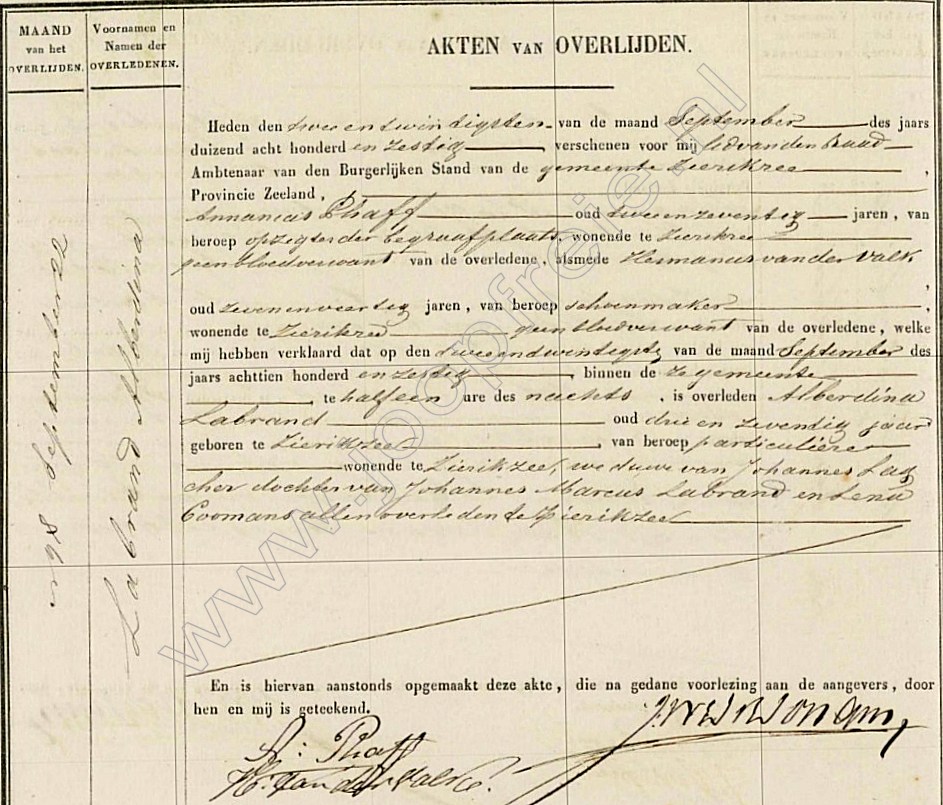 MAAND
van het
OVERLIJDEN.
Voornamen en
Namen der
OVERLEDENEN.
AKTEN VAN OVERLIJDEN.
198 September 22
Labrand Alberdina
Heden den twee en twintigsten van de maand September des jaars
duizend acht honderd en zestig, verschenen voor mij lid van den Raad
Ambtenaar van den Burgerlijken Stand van de gemeente Zierikzee,
Provincie Zeeland,
Annanias Phaff oud twee en zeventig jaren, van
beroep opzigter der begraafplaats, wonende te Zierikzee
geen bloedverwant van de overledene, alsmede Hermanus van der Valk
,
oud zeven en veertig jaren, van beroep schoenmaker,
wonende te Zierikzee geen bloedverwant van de overledene, welke
mij hebben verklaard dat op den twee en twintigste van de maand September des
jaars achttien honderd en zestig, binnen deze gemeente
te half een ure des nachts, is overleden Alberdina
Labrand oud drie en zeventig jaar
geboren te Zierikzee, van beroep particulière
wonende te Zierikzee, weduwe van Johannes Lag
cher dochter van Johannes Marcus Labrand en Lena
Coomans allen overleden te Zierikzee
En is hiervan aanstonds opgemaakt deze akte, die na gedane voorlezing aan de aangevers, door
hen en mij is geteekend.
A: Phaff
H. van der Valk
www.joopfreie.nl